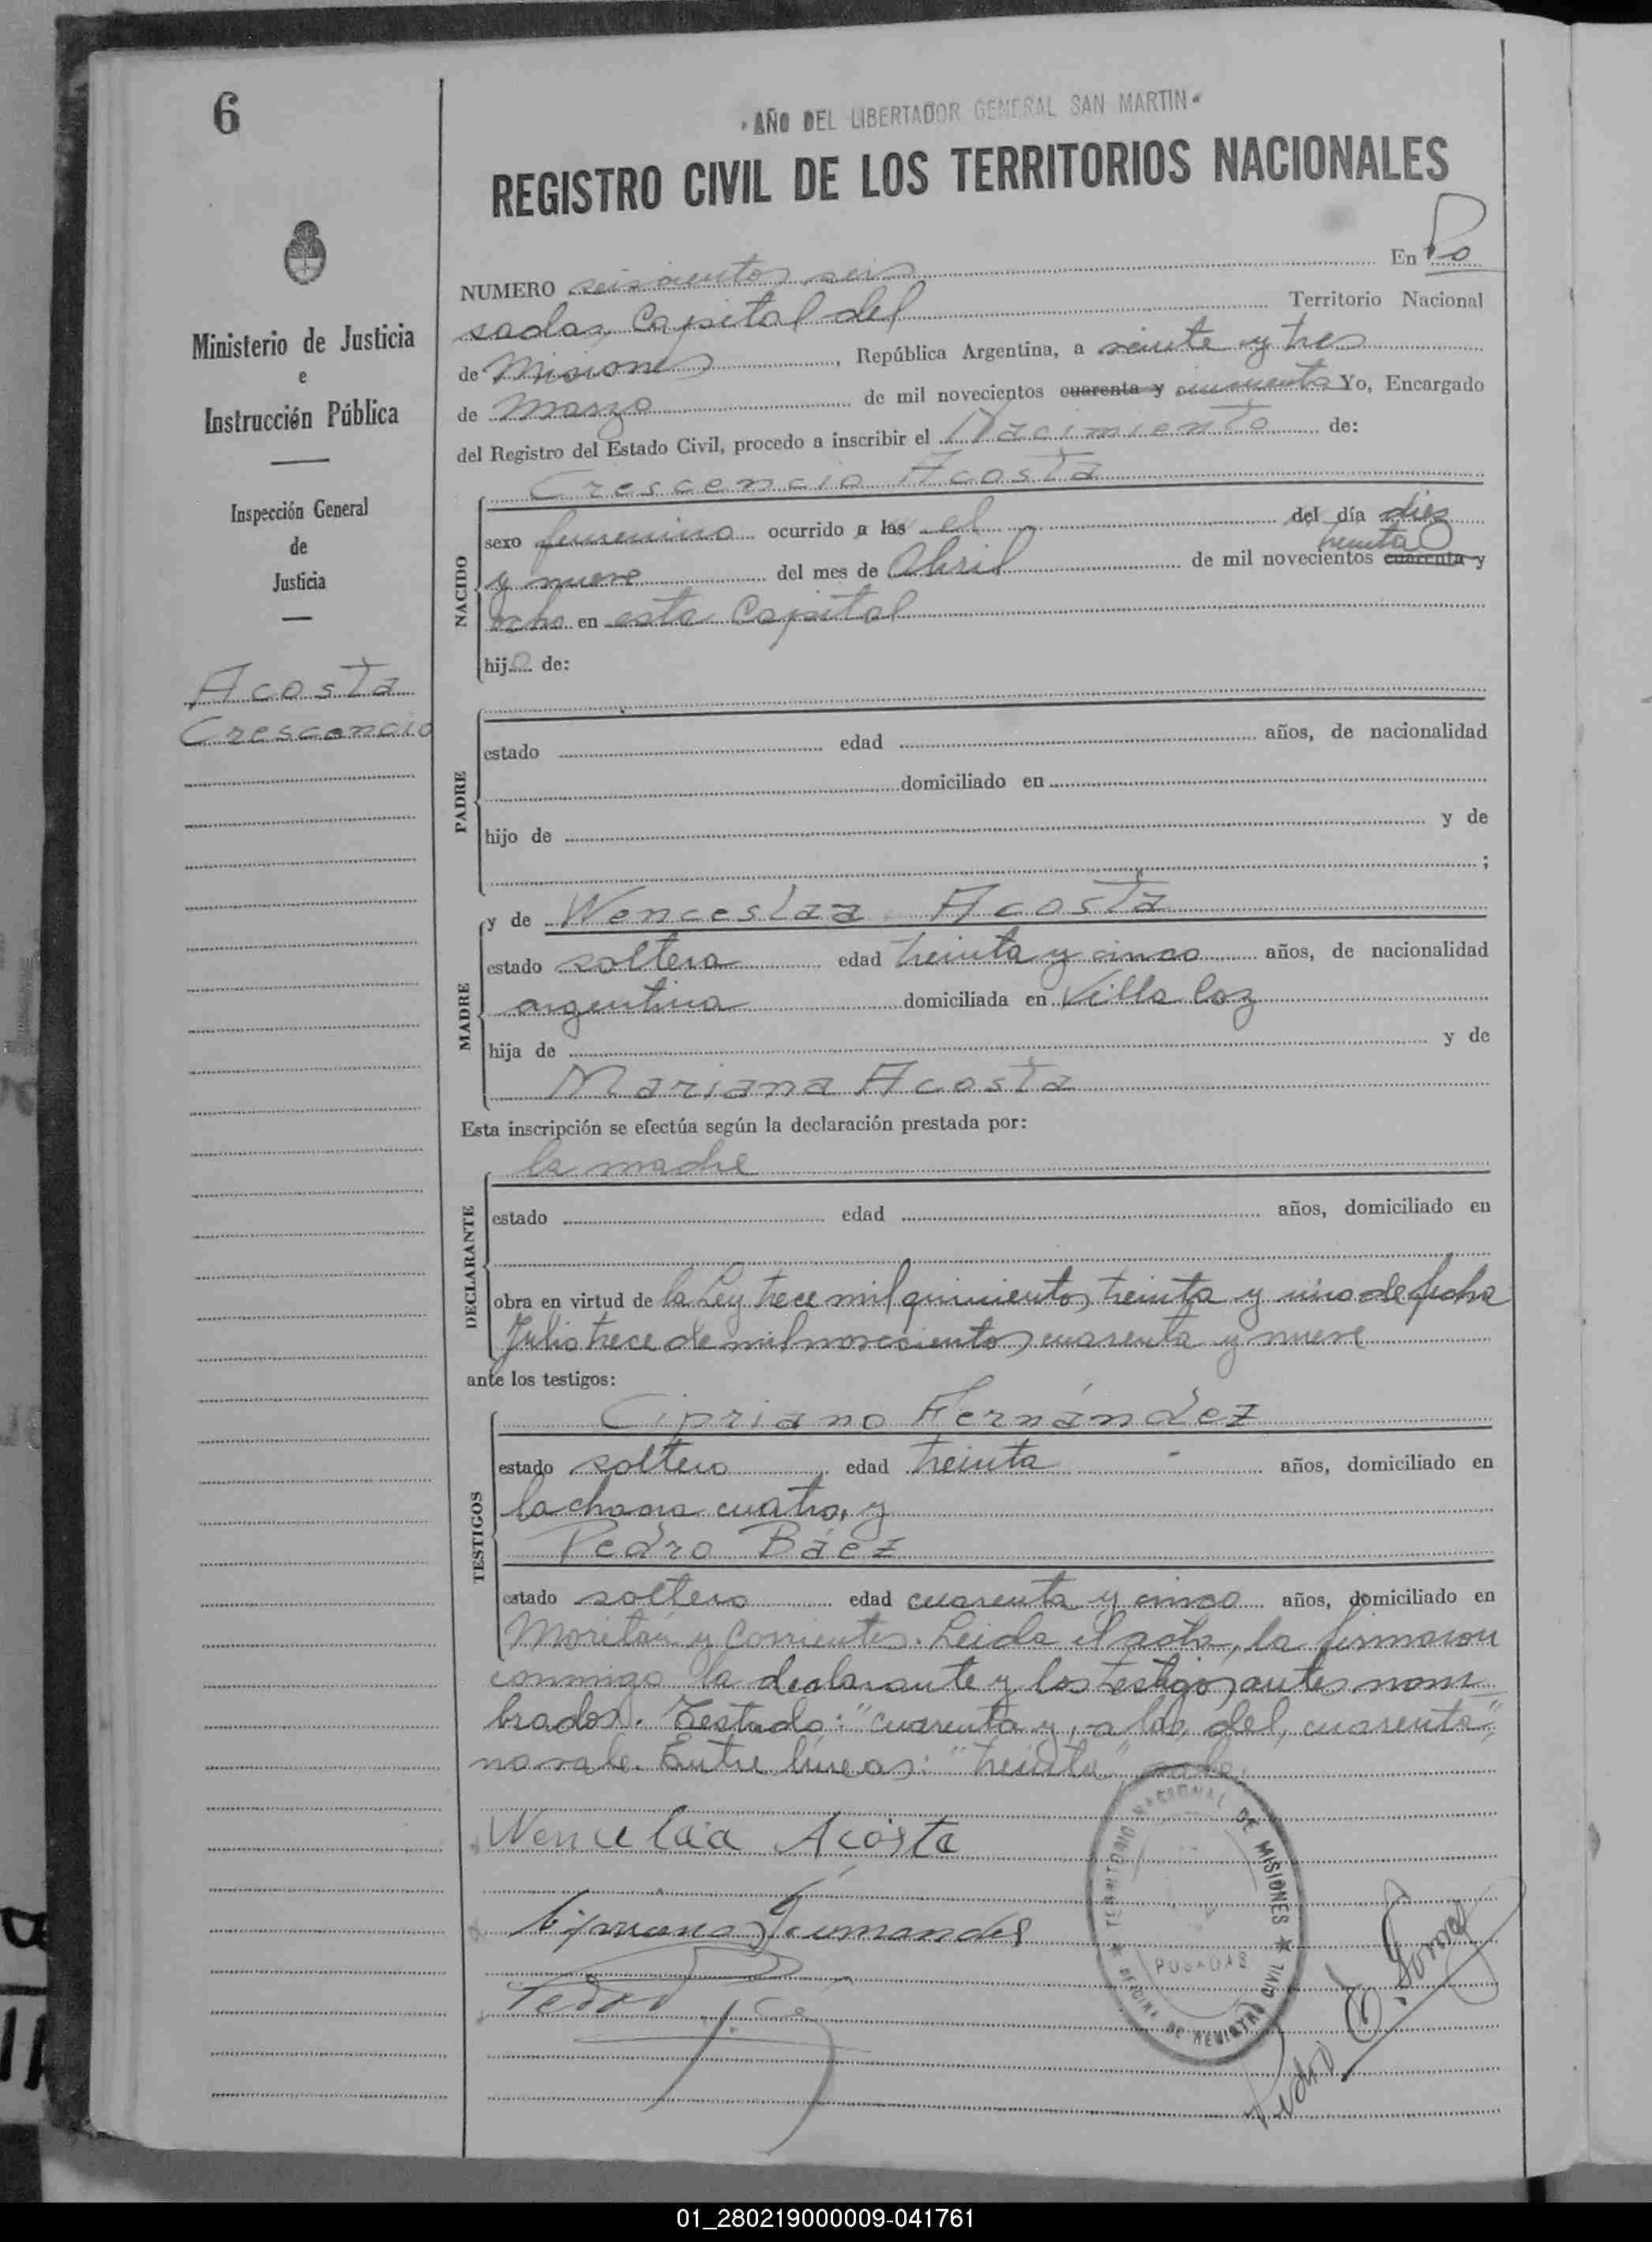 6
"AÑO DEL LIBERTADOR GENERAL SAN MARTIN"
REGISTRO CIVIL DE LOS TERRITORIOS NACIONALES
Ministerio de Justicia
e
Instrucción Pública
Inspección General
de
Justicia
Acosta
Crescencio
NUMERO seiscientos seis En Po
sadas, Capital del Territorio Nacional
de Misiones, República Argentina, a veinte y tres
de Marzo de mil novecientos cuarenta y cincuenta Yo, Encargado
del Registro del Estado Civil, procedo a inscribir el Nacimiento de:
Crescencio Acosta
NACIDO
sexo femenino ocurrido a las el del día diez
treinta
y nueve del mes de Abril de mil novecientos cuarenta y
ocho en esta Capital
hijo de:
PADRE
estado edad años, de nacionalidad
domiciliado en
hijo de y de
;
MADRE
y de Wenceslaa Acosta
estado soltera edad treinta y cinco años, de nacionalidad
argentina domiciliada en Villa
hija de y de
Mariana Acosta
Esta inscripción se efectúa según la declaración prestada por:
la madre
DECLARANTE
estado edad años, domiciliado en
obra en virtud de la Ley trece mil quinientos treinta y uno de fecha
Julio trece de mil novecientos cuarenta y nueve
ante los testigos:
TESTIGOS
Cipriano Fernández
estado soltero edad treinta años, domiciliado en
la chacra cuatro, y
Pedro Báez
estado soltero edad cuarenta y cinco años, domiciliado en
y Corrientes. Leida el acta, la firmaron
conmigo la declarante y los testigos antes nom
brados. Testado: "cuarenta y, a las, del, cuarenta",
no vale. Entre líneas: "treinta" vale.
Wencelaa Acosta
Cipriano Fernandez
Pedro
TERRITORIO NACIONAL DE MISIONES
POSADAS
OFICINA DE REGISTRO CIVIL
Pedro
01_280219000009-041761